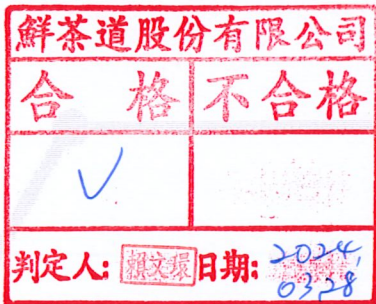 鮮茶道股份有限公司
合格 不合格
✓
判定人: 賴文環 日期: 2024,
03.28